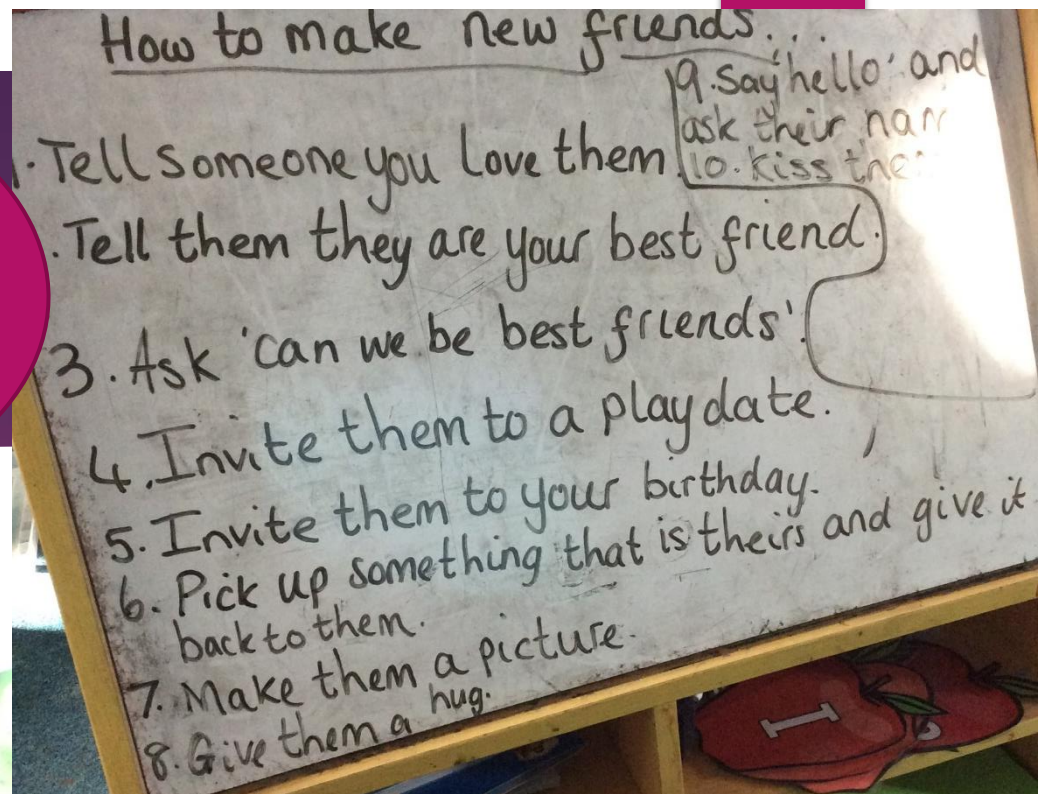 How to make new friends...
1. Tell someone you love them.
. Tell them they are your best friend.
3. Ask 'can we be best friends'.
4. Invite them to a playdate.
5. Invite them to your birthday.
6. Pick up something that is theirs and give it
back to them.
7. Make them a picture.
8. Give them a hug.
9. Say 'hello' and
ask their
10. kiss
I